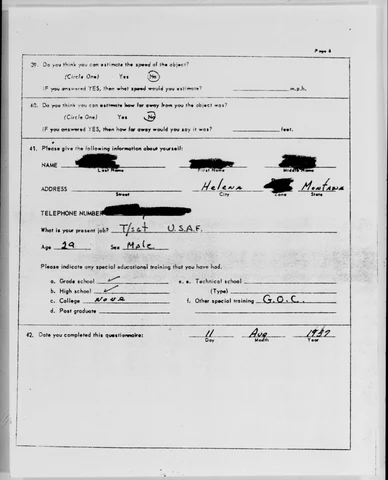 Page 8
39. Do you think you can estimate the speed of the object?
(Circle One) Yes No
IF you answered YES, then what speed would you estimate? m.p.h.
40. Do you think you can estimate how far away from you the object was?
(Circle One) Yes No
IF you answered YES, then how far away would you say it was? feet.
41. Please give the following information about yourself:
NAME
Last Name First Name Middle Name
ADDRESS Helena Montana
Street City Zone State
TELEPHONE NUMBER
What is your present job? T/Sgt U.S.A.F.
Age 29 Sex Male
Please indicate any special educational training that you have had.
a. Grade school ✓ e. Technical school
b. High school ✓ (Type)
c. College None f. Other special training G.O.C.
d. Post graduate
42. Date you completed this questionnaire: 11 Aug 1957
Day Month Year